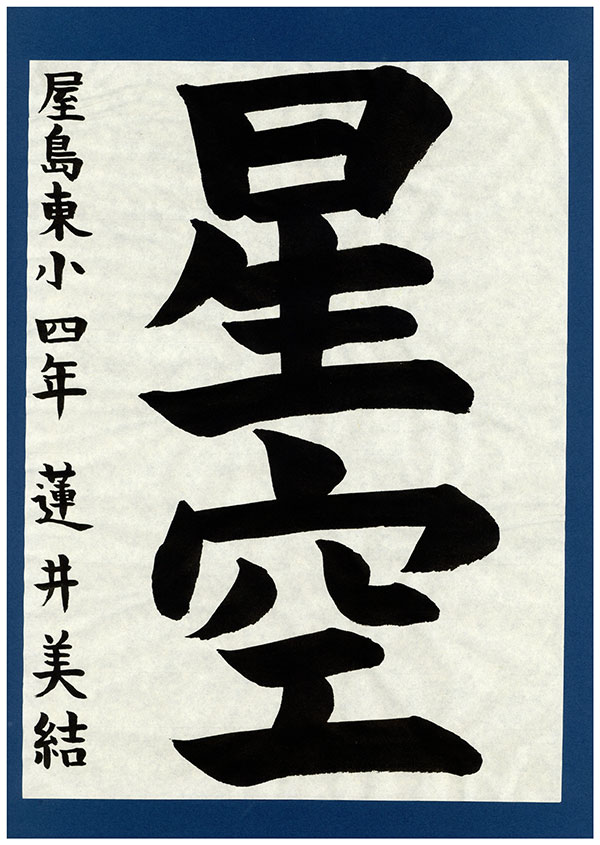 星空
屋島東小 四年 蓮井美結